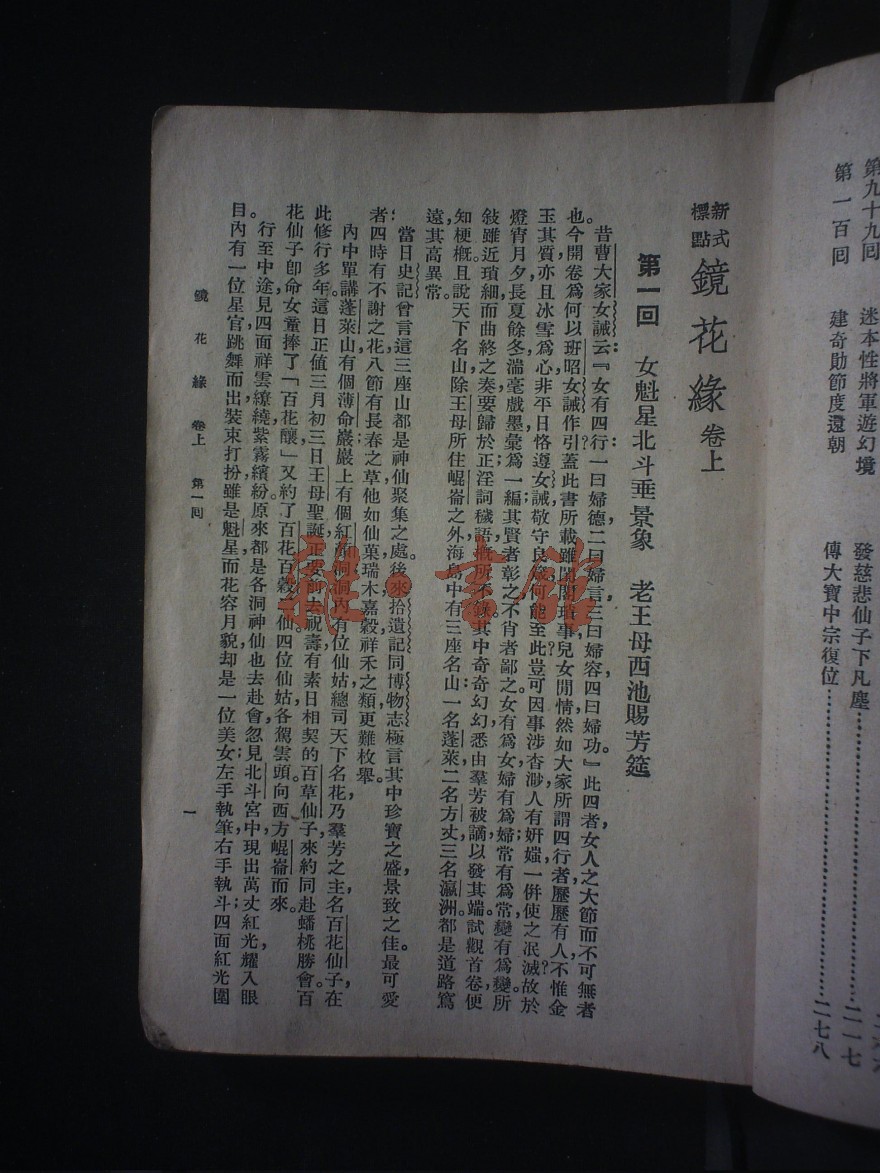 第九十九回 迷本性將軍遊幻境 發慈悲仙子下凡塵……二一七
第一百回 建奇勛節度還朝 傳大寶中宗復位……二七八
新式標點 鏡花緣 卷上
第一回 女魁星北斗垂景象 老王母西池賜芳筵
昔曹大家女誡云：『女有四行：一曰婦德，二曰婦言，三曰婦容，四曰婦功。』此四者，女人之大節，而不可無者
也。今開卷爲何以班昭女誡作引？蓋此書所載雖閨閣瑣事，兒女閒情，然如大家所謂四行者，歷歷有人，不惟金
玉其質，亦且冰雪爲心；非平日恪遵女誡，敬守良箴，何能至此？豈可因事涉杳渺，人有妍媸，一併使之泯滅？故於
燈宵月夕，長夏餘冬，濡毫戲墨，彙爲一編；其賢者彰之，不肖者鄙之；女有爲女，婦有爲婦；常有爲常，變有爲變。所
敍雖近瑣細，而曲終之奏，要歸於正，淫詞穢語，概所不錄。其中奇奇幻幻，悉由羣芳被謫，以發其端，試觀首卷，便
知梗概。且說天下名山，除王母所住崐崙之外，海島中有三座名山：一名蓬萊，二名方丈，三名瀛洲。都是道路窵
遠，其高異常。
當日史記曾言這三座山都是神仙聚集之處。後來拾遺記同博物志極言其中珍寶之盛，景致之佳。最可愛
者：四時有不謝之花，八節有長春之草。他如仙菓、瑞木、嘉穀、祥禾之類，更難枚舉。
內中單講蓬萊山有個薄命巖，巖上有個紅顏洞，洞內有位仙姑，總司天下名花，乃羣芳之主，名百花仙子，在
此修行多年。這日正值三月初三日王母聖誕，正要前去祝壽，有素日相契的百草仙子來約同赴蟠桃勝會。百
花仙子卽命女童捧了「百花釀」；又約了百花、百穀二仙，四位仙姑，各駕雲頭，向西方崐崙而來。
行至中途，見四面祥雲繚繞，紫霧繽紛，原來都是各洞神仙，也去赴會。忽見北斗宮中現出萬丈紅光，耀入眼
目。內有一位星官，跳舞而出，裝束打扮，雖是魁星，而花容月貌，却是一位美女；左手執筆，右手執斗；四面紅光圍
鏡花緣 卷上 第一回
一